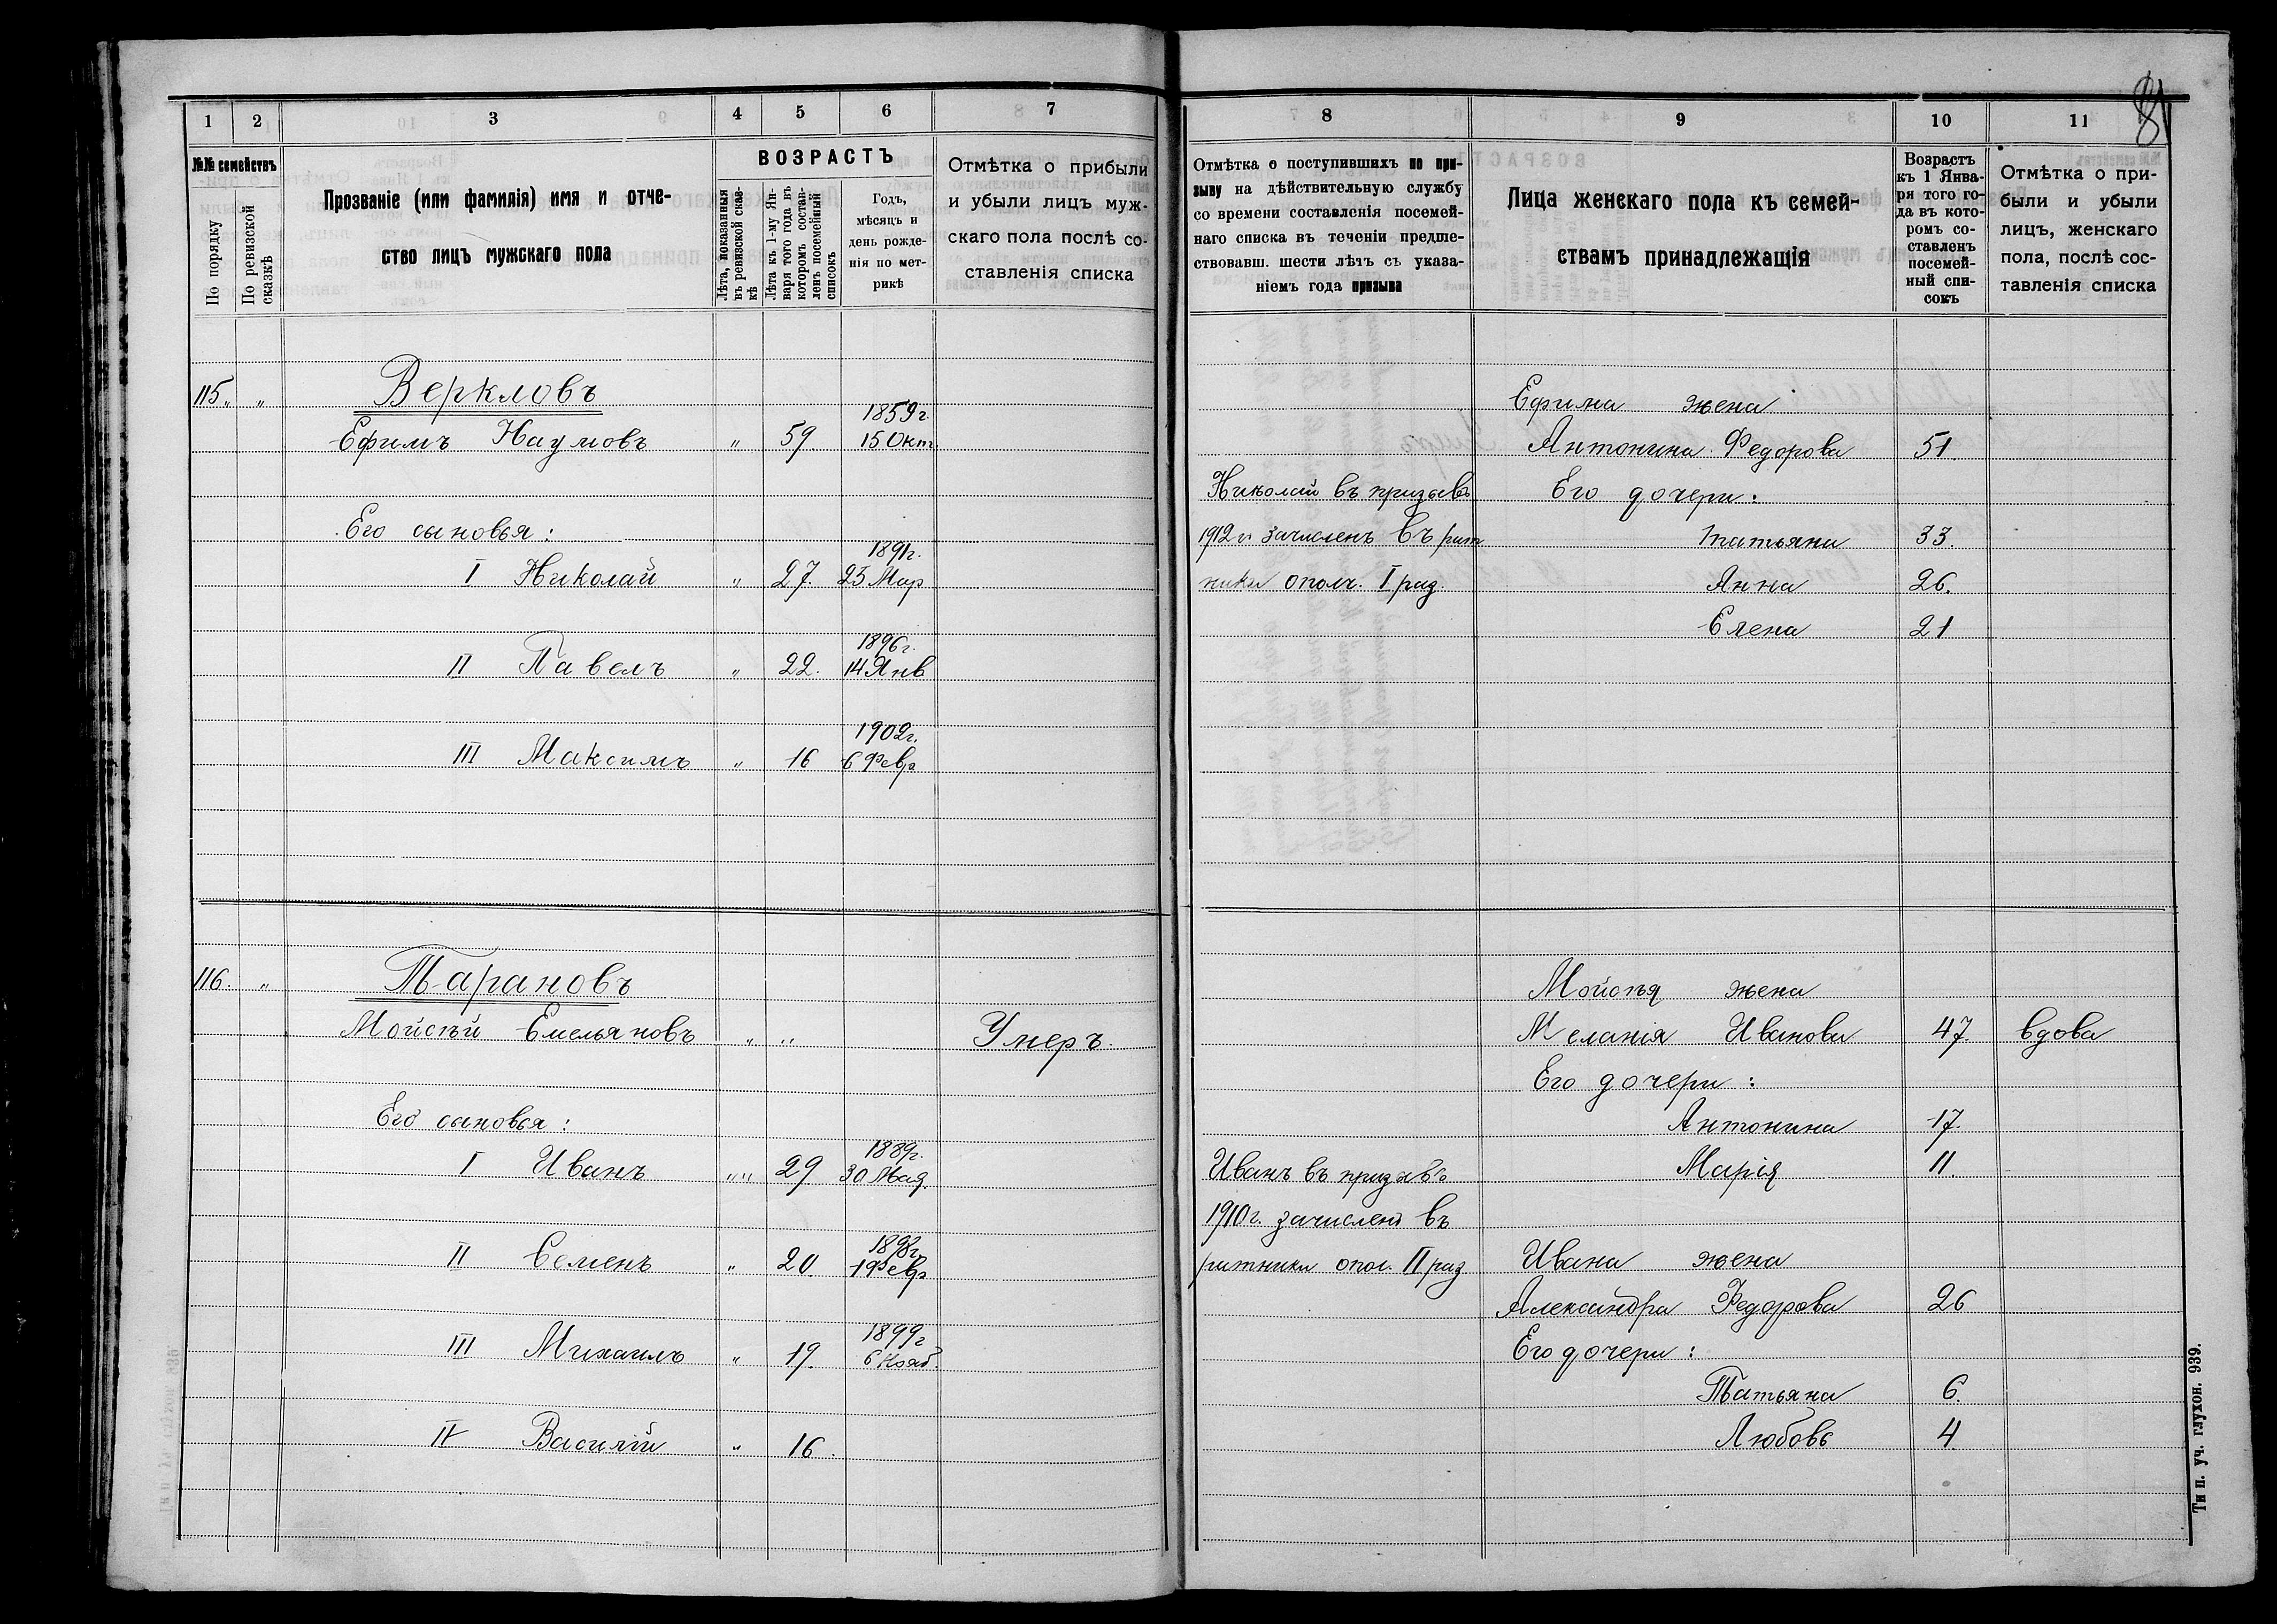 81
1 2 3 4 5 6 7
№№ семействъ
По порядку
По ревизской сказкѣ
Прозваніе (или фамилія) имя и отче-
ство лицъ мужскаго пола
ВОЗРАСТЪ
Лѣта, показанныя
въ ревизской сказ-
кѣ
Лѣта къ 1-му Ян-
варя того года въ
которомъ состав-
ленъ посемейный
списокъ
Годъ,
мѣсяцъ и
день рожде-
нія по мет-
рикѣ
Отмѣтка о прибыли
и убыли лицъ муж-
скаго пола послѣ со-
ставленія списка
115. „ Веркловъ
1859 г.
Ефимъ Наумовъ „ 59 15 Окт.
Его сыновья:
1891 г.
I Николай „ 27. 25 Мар
1896 г.
II Павелъ „ 22. 14 Янв
1902 г.
III Максимъ „ 16 6 Февр
116. „ Тарановъ
Мойсѣй Емельяновъ „ „ Умеръ.
Его сыновья:
1889 г.
I Иванъ „ „ 29 30 Мая.
1898 г.
II Семенъ „ 20. 1 Февр
1899 г
III Михаилъ „ 19. 6 Нояб.
IV Василій „ 16.
8 9 10 11
Отмѣтка о поступившихъ по при-
зыву на дѣйствительную службу
со времени составленія посемей-
наго списка въ теченіи предше-
ствовавш. шести лѣтъ съ указа-
ніемъ года призыва
Лица женскаго пола къ семей-
ствамъ принадлежащія
Возрастъ
къ 1 Янва-
ря того го-
да въ кото-
ромъ со-
ставленъ
посемей-
ный спи-
сокъ
Отмѣтка о при-
были и убыли
лицъ, женскаго
пола, послѣ сос-
тавленія списка
Ефима жена
Антонина Федорова 51.
Николай въ призывъ Его дочери:
1912 г. зачисленъ въ рат Татьяна 33.
ники ополч. I раз. Анна 26.
Елена 21
Мойсѣя жена
Меланія Иванова 47. вдова
Его дочери:
Антонина 17.
Иванъ въ призывъ Марія 11.
1910 г. зачисленъ въ
ратники опол. II раз Ивана жена
Александра Федорова 26
Его дочери:
Татьяна 6.
Любовь 4
Тип. уч. глухон. 939.